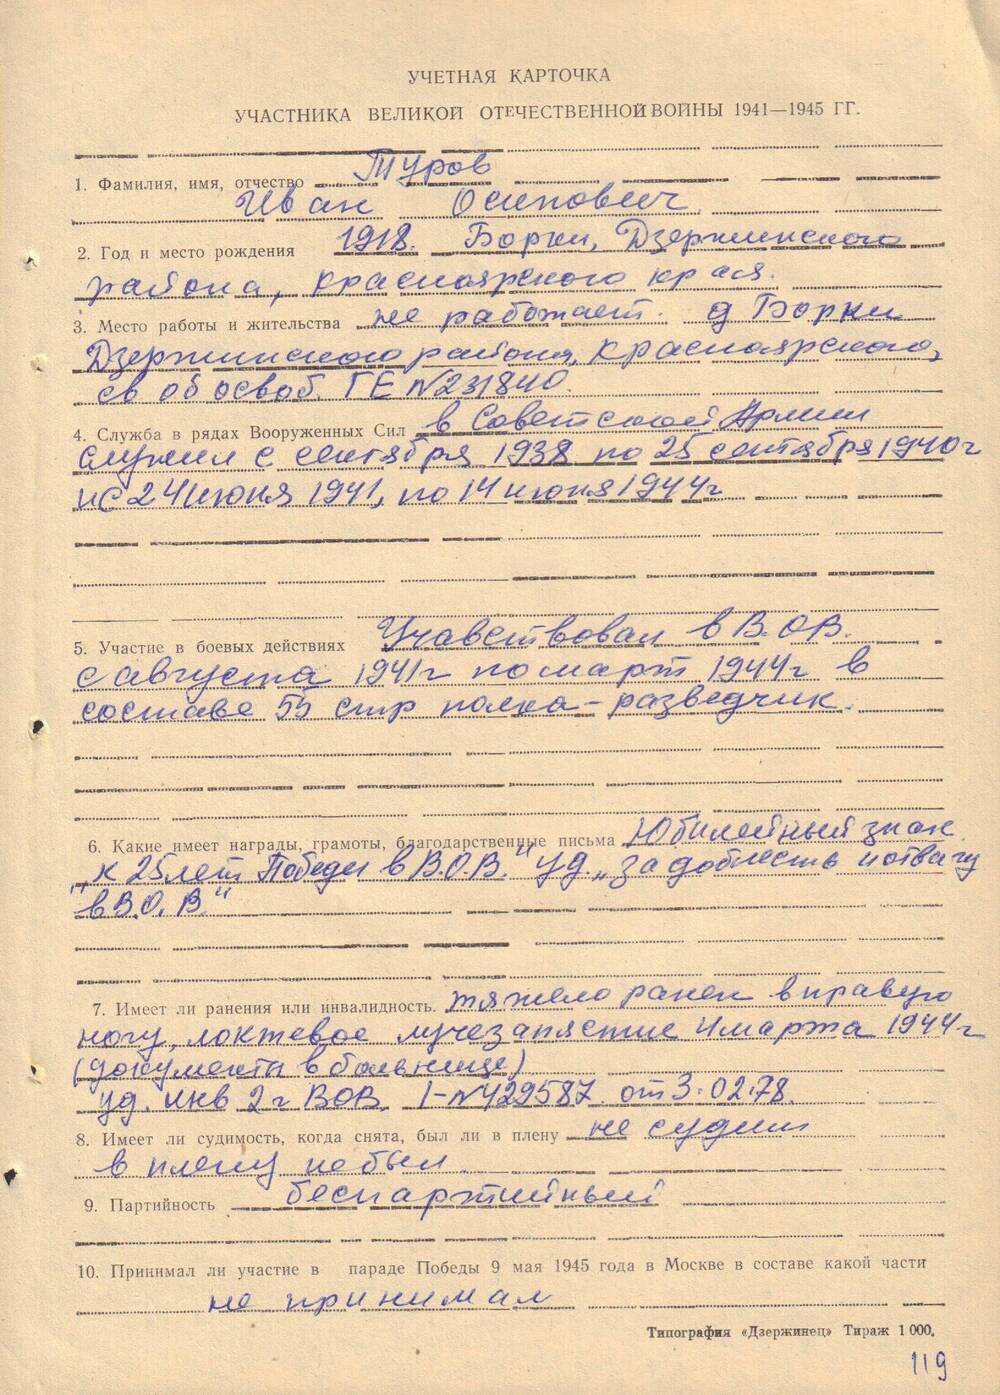 УЧЕТНАЯ КАРТОЧКА
УЧАСТНИКА ВЕЛИКОЙ ОТЕЧЕСТВЕННОЙ ВОЙНЫ 1941—1945 ГГ.
1. Фамилия, имя, отчество Туров
Иван Осипович
2. Год и место рождения 1918. Борки, Дзержинского
района, Красноярского края.
3. Место работы и жительства не работает. д Борки
Дзержинского района, Красноярского,
св об освоб. ГЕ №231840.
4. Служба в рядах Вооруженных Сил в Советской Армии
служил с сентября 1938 по 25 сентября 1940г
и с 24 июня 1941, по 14 июня 1944г
5. Участие в боевых действиях Учавствовал в В.О.В.
с августа 1941г по март 1944г в
составе 55 стр полка - разведчик.
6. Какие имеет награды, грамоты, благодарственные письма Юбилейный знак
"к 25 лет Победы в В.О.В." уд „за доблесть и отвагу
в В.О.В."
7. Имеет ли ранения или инвалидность. тяжело ранен в правую
ногу, локтевое лучезапястие 4 марта 1944г
(документы в больнице)
уд. инв 2 г ВОВ I-№429587 от 3.02.78.
8. Имеет ли судимость, когда снята, был ли в плену не судим
в плену не был.
9. Партийность беспартийный
10. Принимал ли участие в параде Победы 9 мая 1945 года в Москве в составе какой части
не принимал
Типография «Дзержинец» Тираж 1 000.
119